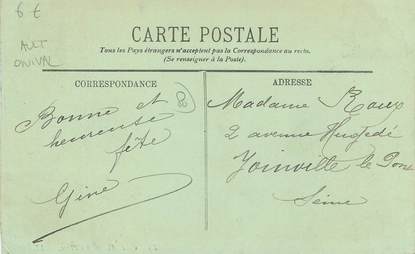 6 €
AULT
ONIVAL
CARTE POSTALE
Tous les Pays étrangers n'acceptent pas la Correspondance au recto.
(Se renseigner à la Poste).
CORRESPONDANCE
Bonne et
heureuse
fête
Gine
80
ADRESSE
Madame Roux
2 avenue
Joinville le Pont
Seine